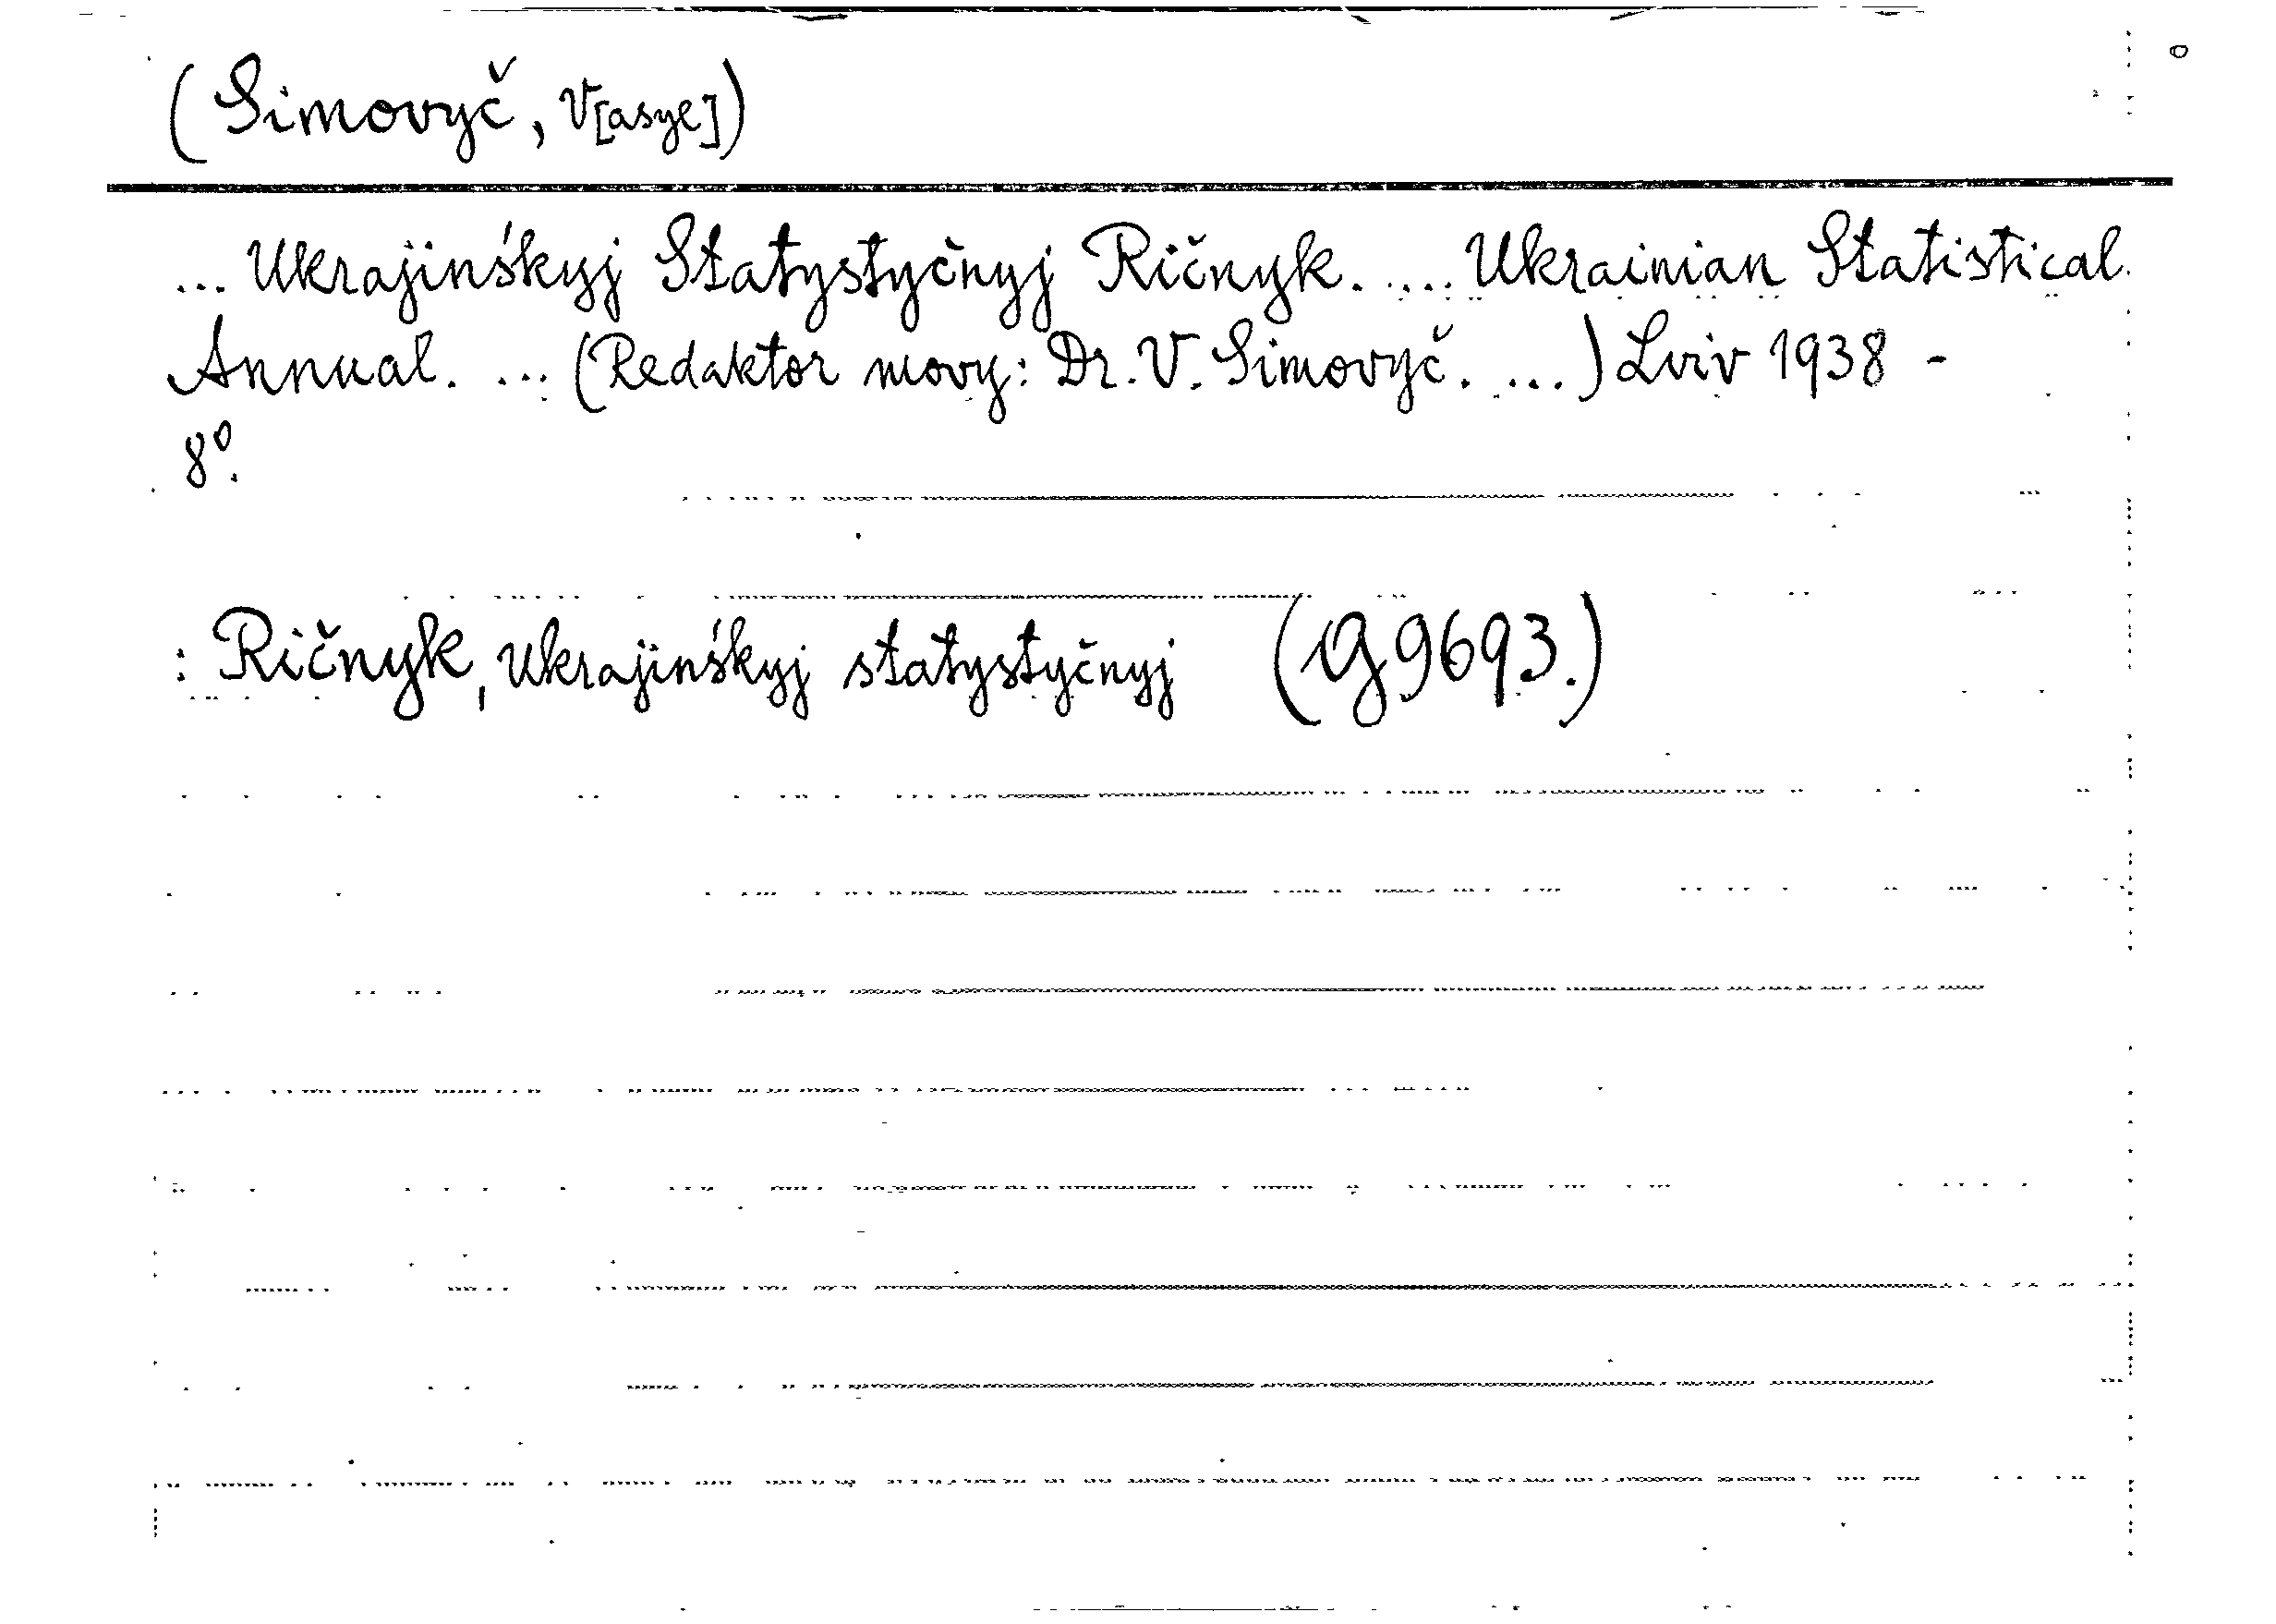 (Simovyč, V[asyl])
... Ukrajinśkyj Statystyčnyj Ričnyk. .... Ukrainian Statistical
Annual. ... (Redaktor movy: Dr. V. Simovyč. ...) Lviv 1938 -
8º.
: Ričnyk, ukrajinśkyj statystyčnyj (G 9693.)